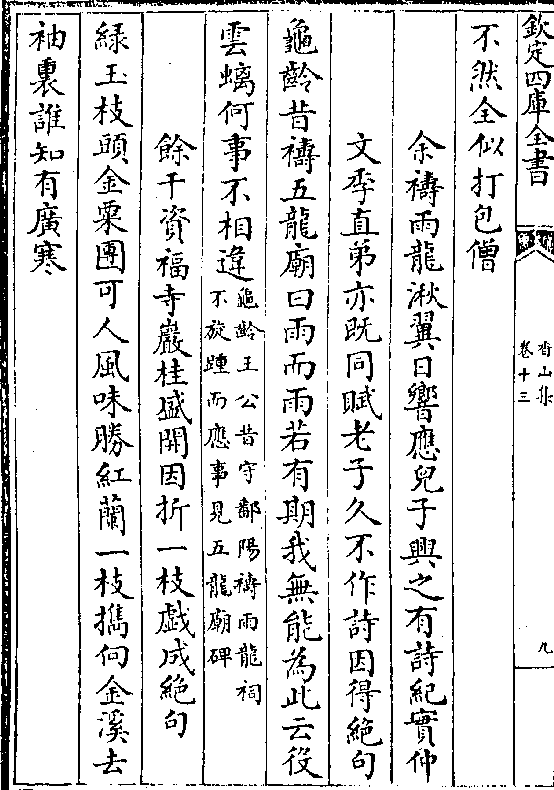 欽定四庫全書
香山集
卷十三
九
不然全似打包僧
余禱雨龍湫翼日響應兒子興之有詩紀實仲
文季直弟亦旣同賦老子久不作詩因得絶句
龜齡昔禱五龍廟曰雨而雨若有期我無能為此云役
雲螭何事不相違龜齡王公昔守鄱陽禱雨龍祠
不旋踵而應事見五龍廟碑
餘干資福寺巖桂盛開因折一枝戯成絶句
緑玉枝頭金粟團可人風味勝紅蘭一枝擕向金溪去
袖裏誰知有廣寒